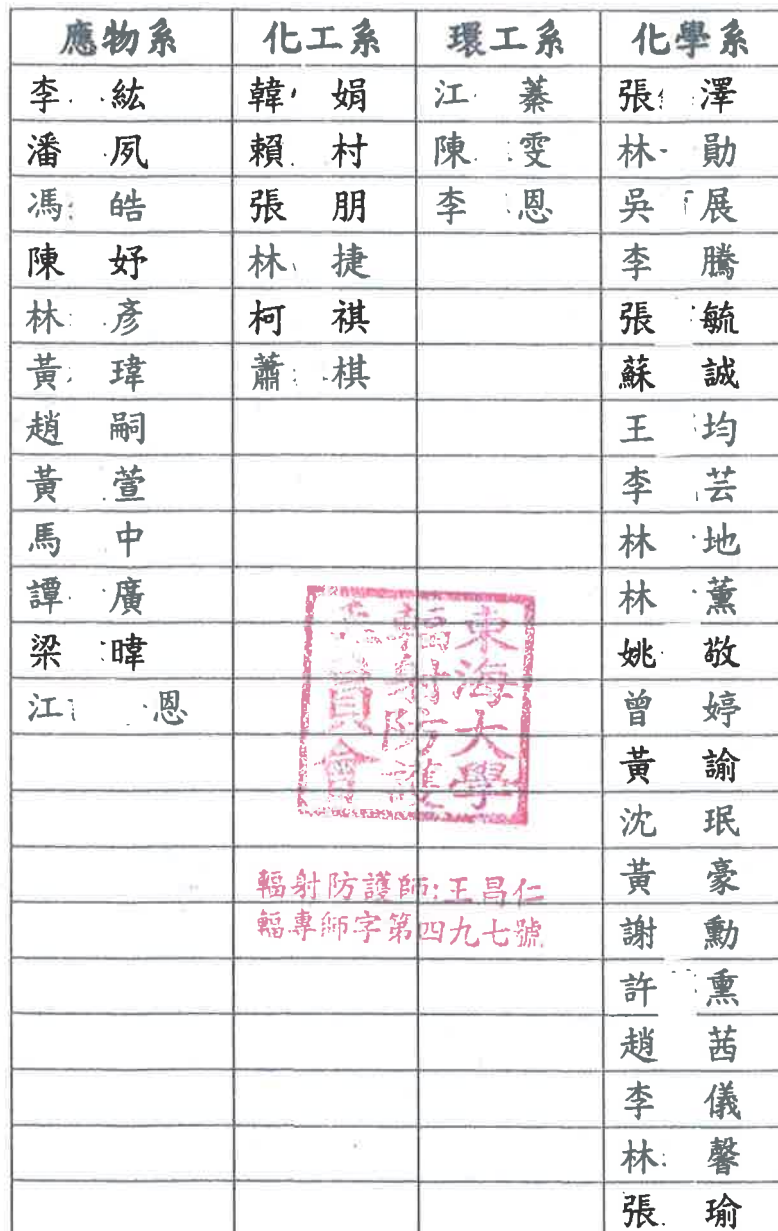 應物系 化工系 環工系 化學系
李 紘 韓 娟 江 蓁 張 澤
潘 夙 賴 村 陳 雯 林 勛
馮 皓 張 朋 李 恩 吳 展
陳 妤 林 捷 李 騰
林 彥 柯 祺 張 毓
黃 瑋 蕭 棋 蘇 誠
趙 嗣 王 均
黃 萱 李 芸
馬 中 林 地
譚 廣 林 薰
梁 暐 姚 敬
江 恩 曾 婷
黃 諭
沈 珉
黃 豪
謝 勳
許 熏
趙 茜
李 儀
林 馨
張 瑜
東海大學
輻射防護
委員會
輻射防護師:王昌仁
輻專師字第四九七號